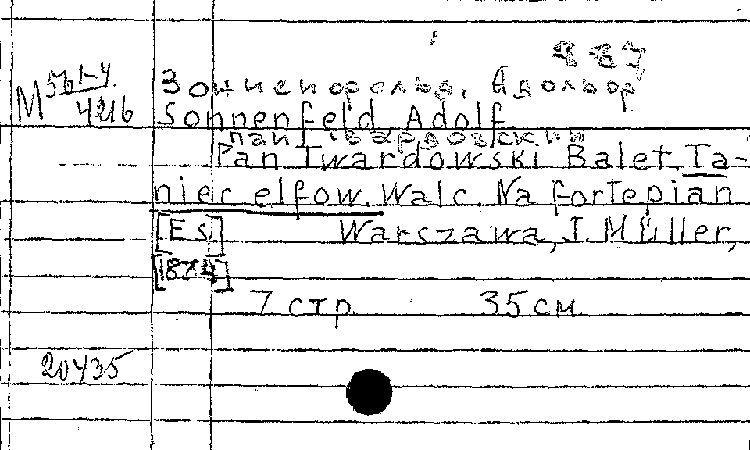 887
М 561-4/426 Зонненфельд, Адольф
Sonnenfeld, Adolf
Пан Твардовский
Pan Twardowski. Balet. Ta-
niec elfow. Walc. Na fortepian
[Es] Warszawa, J. Müller,
[1874]
7 стр. 35 см.
20435